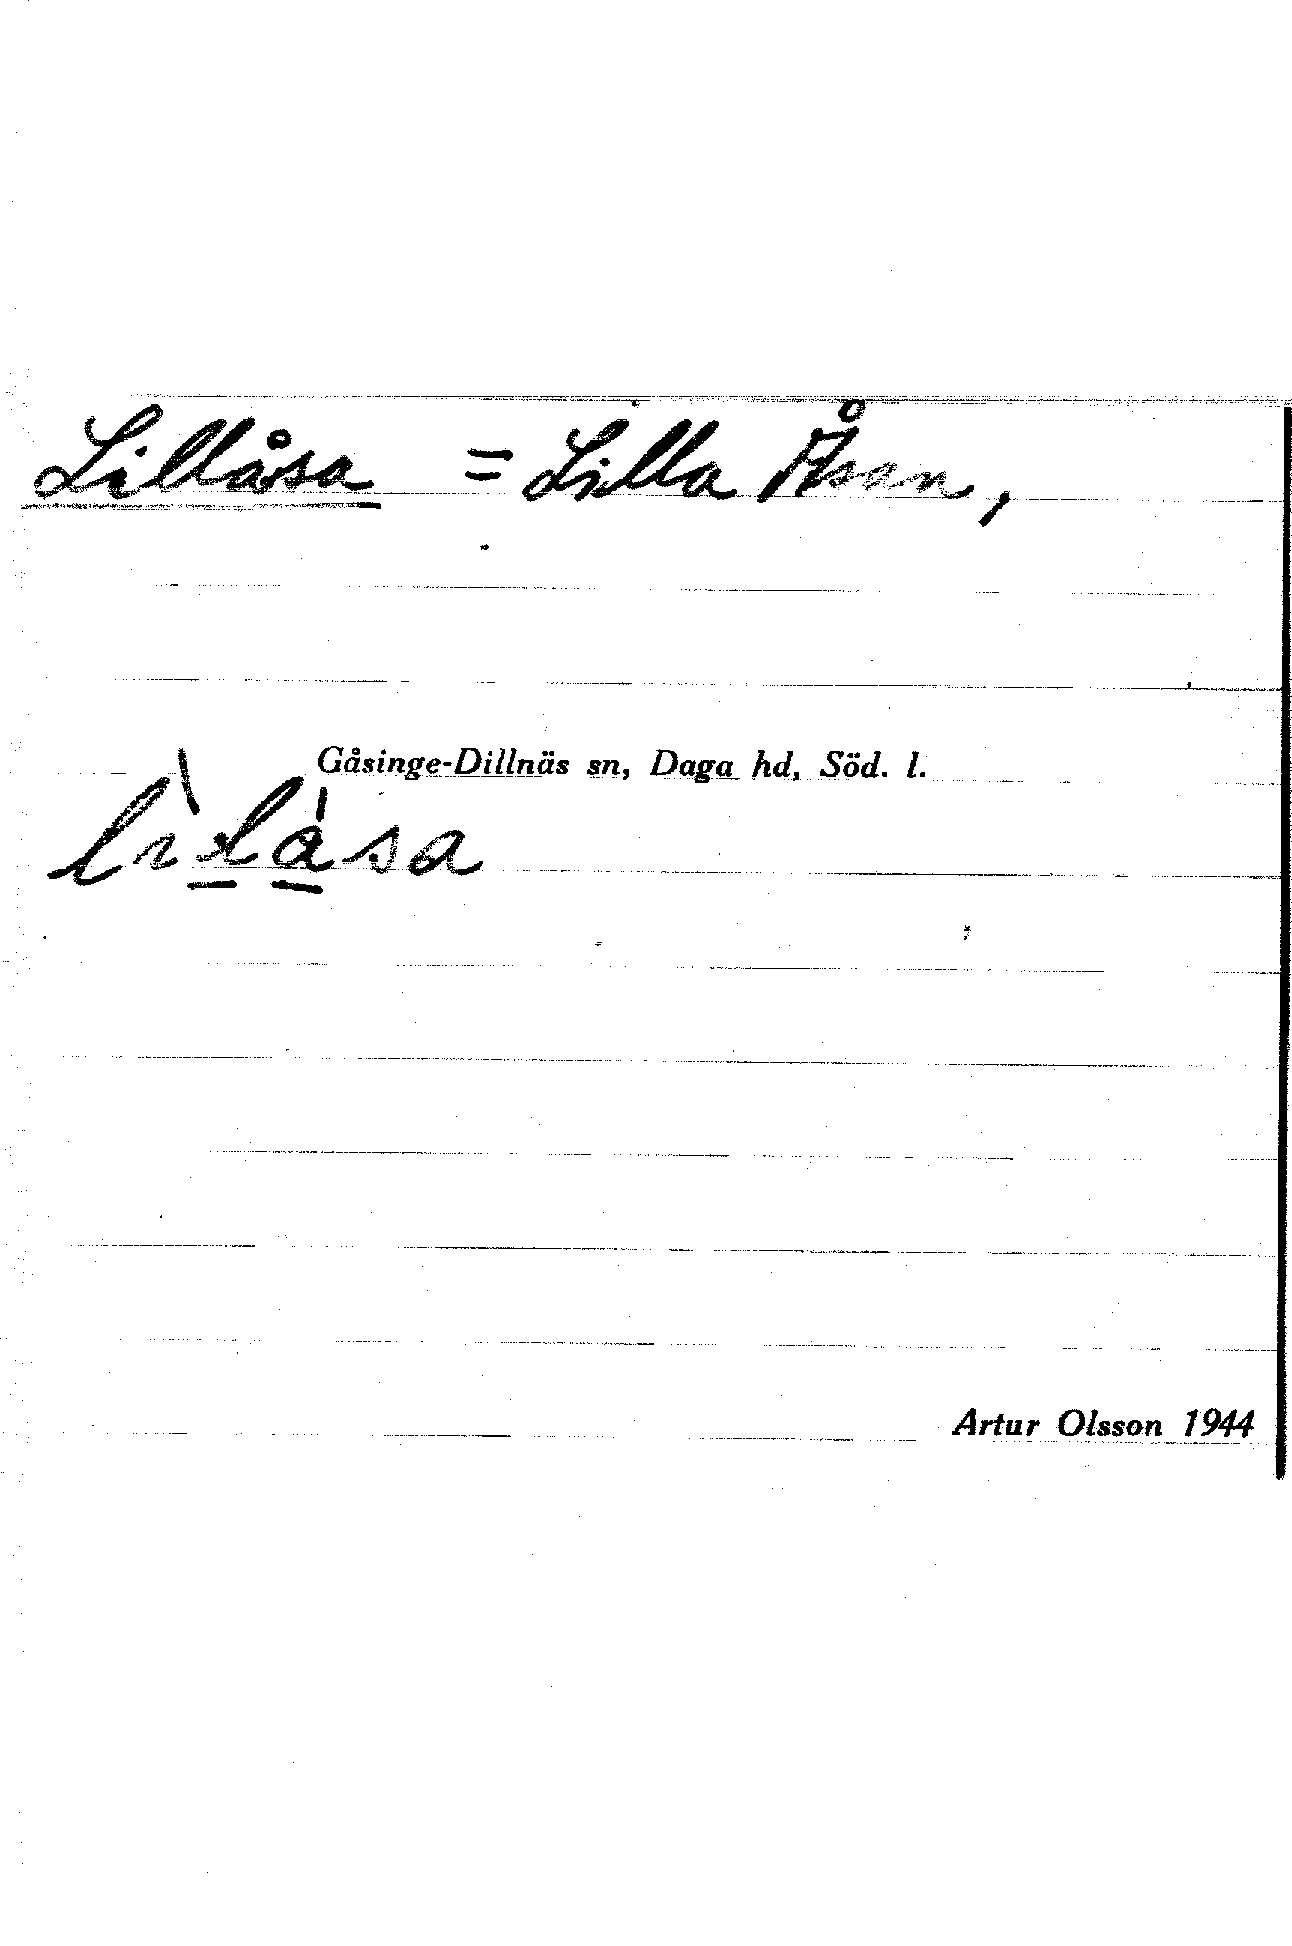 Lillåsa = Lilla Åsan,
Gåsinge-Dillnäs sn, Daga hd, Söd. l.
lìlàsa
Artur Olsson 1944